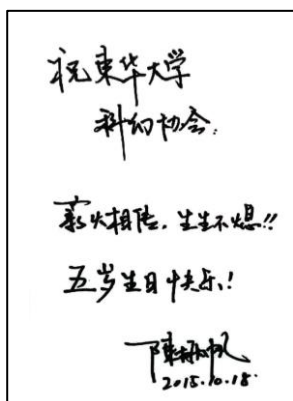 祝东华大学
科幻协会:
薪火相传,生生不熄!!
五岁生日快乐!
陳楸帆
2015.10.18.